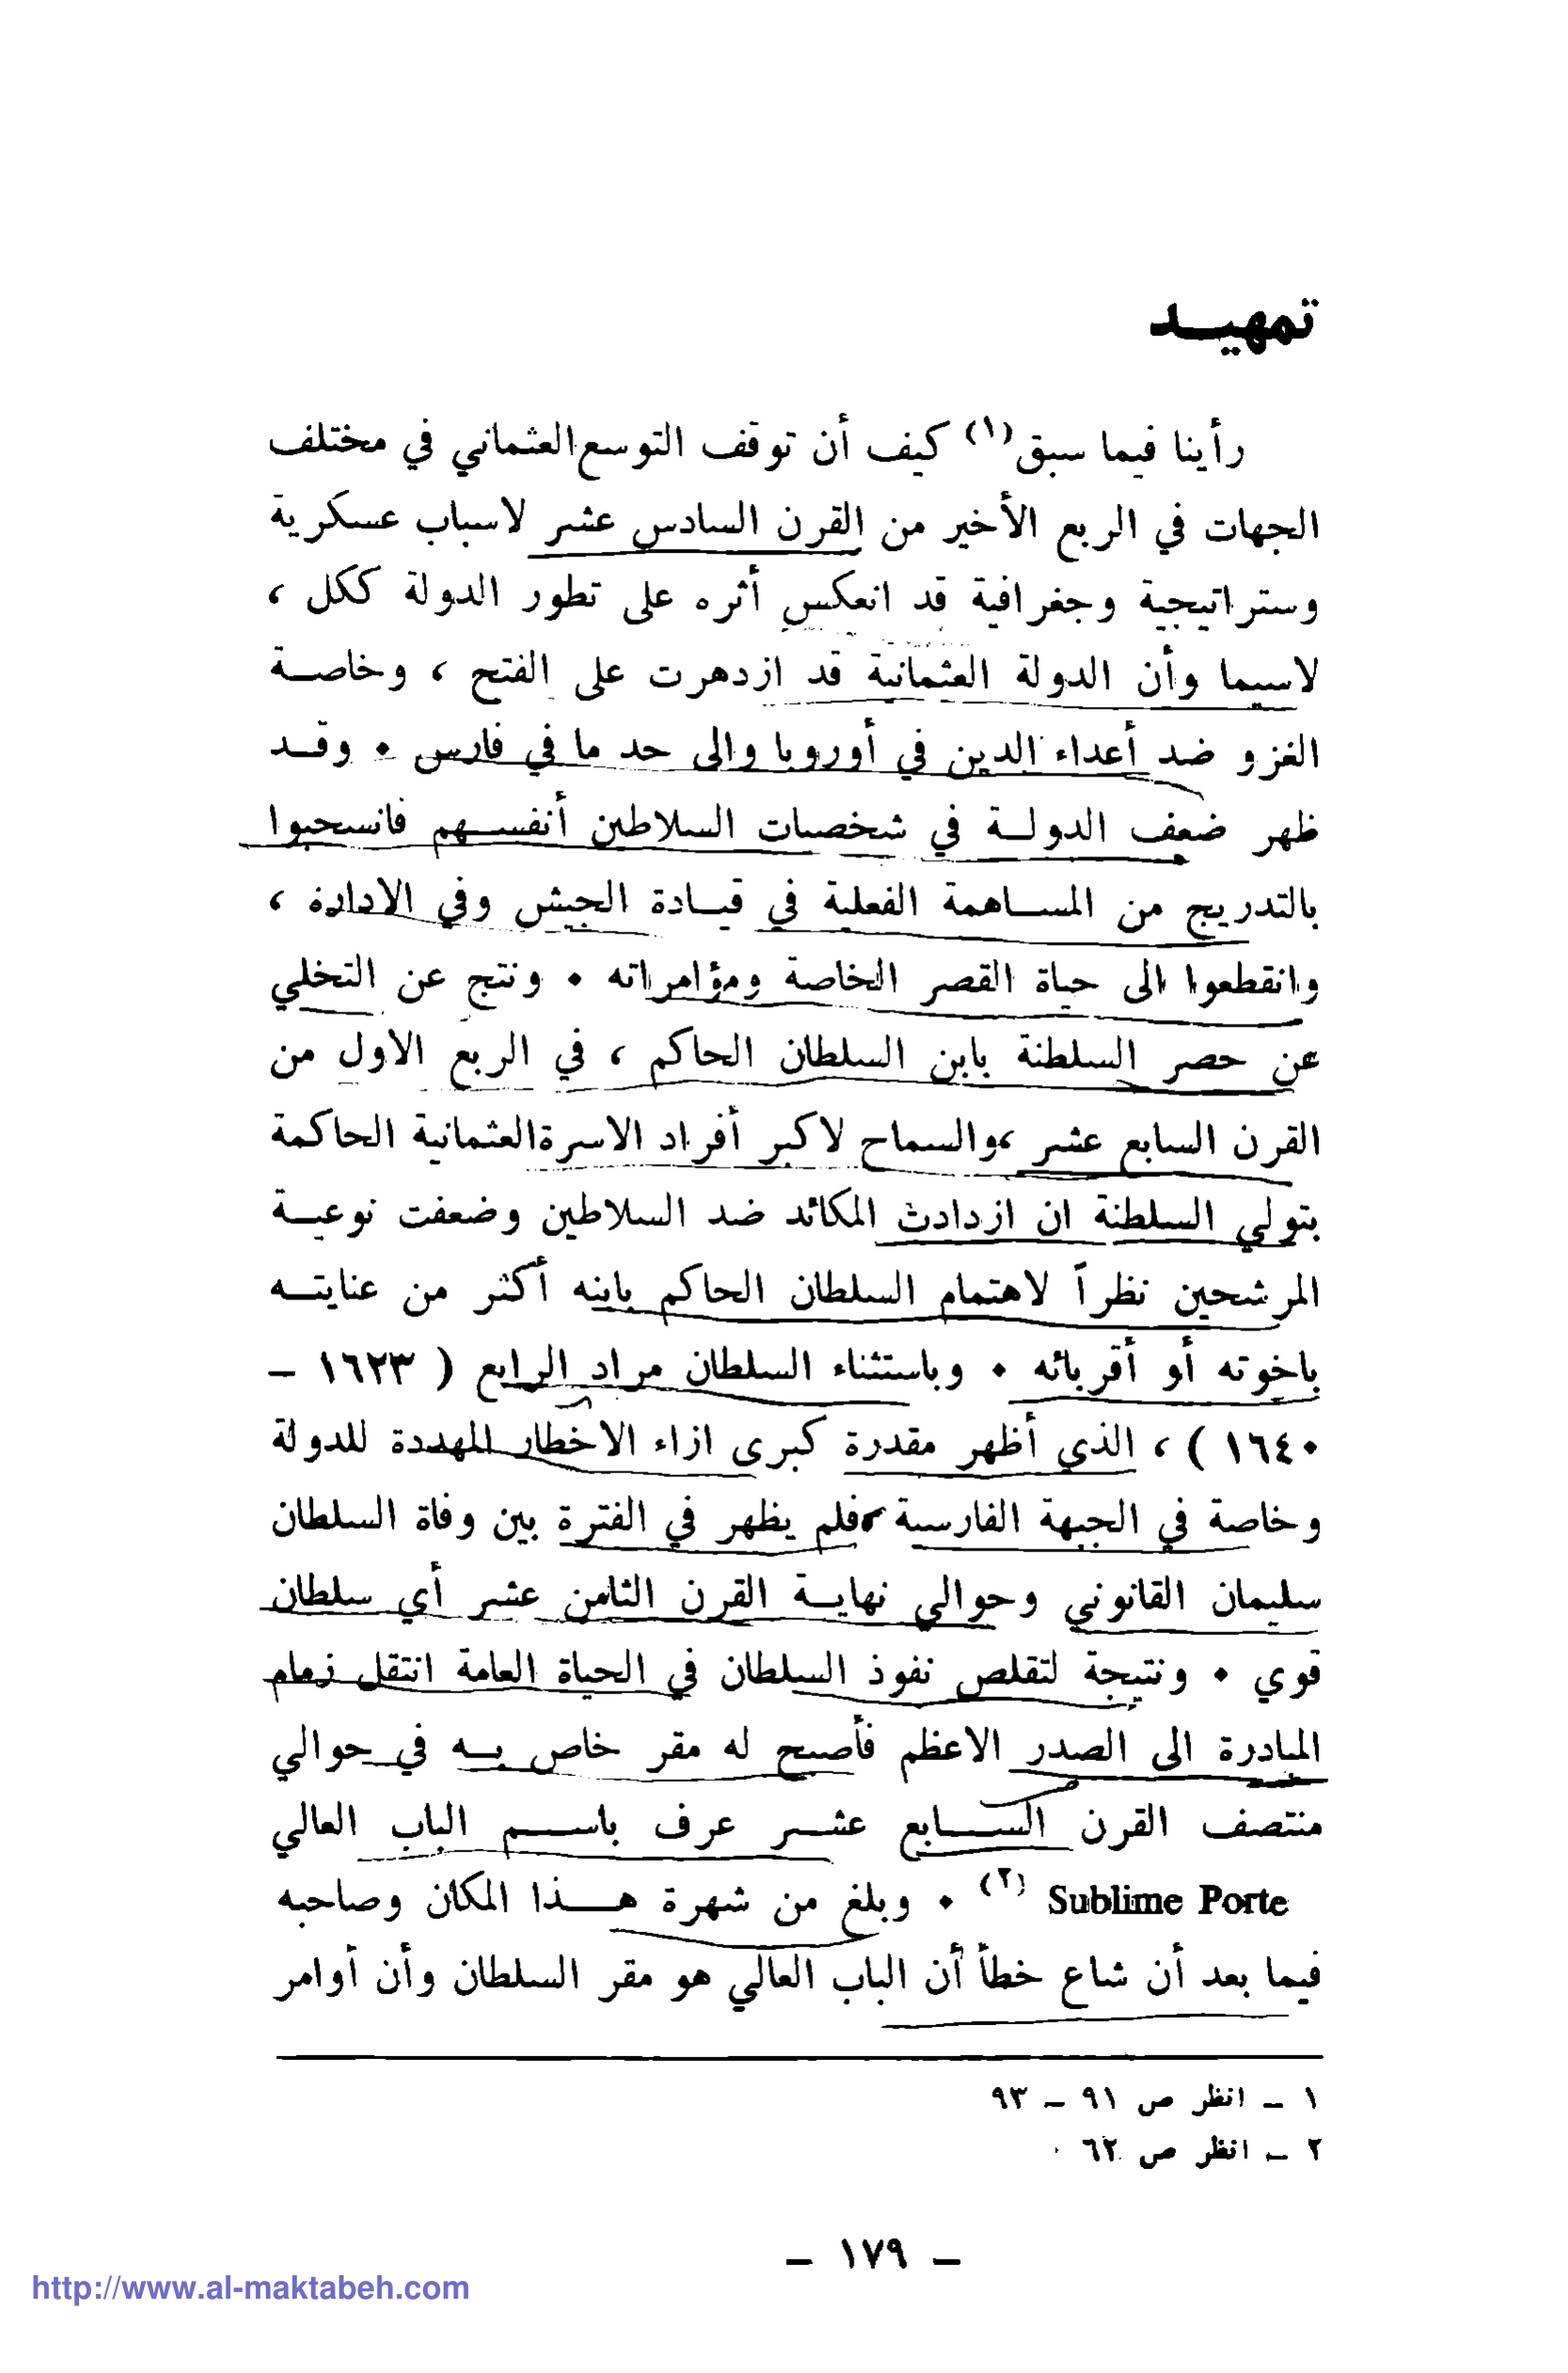 تمهيـد
رأينا فيما سبق(١) كيف أن توقف التوسع العثماني في مختلف
الجهات في الربع الأخير من القرن السادس عشر لاسباب عسكرية
وستراتيجية وجغرافية قد انعكس أثره على تطور الدولة ككل ،
لاسيما وأن الدولة العثمانية قد ازدهرت على الفتح ، وخاصـة
الغزو ضد أعداء الدين في أوروبا والى حد ما في فارس . وقـد
ظهر ضعف الدولـة في شخصيات السلاطين أنفسـهم فانسحبوا
بالتدريج من المسـاهمة الفعلية في قيـادة الجيش وفي الادارة ،
وانقطعوا الى حياة القصر الخاصة ومؤامراته . ونتج عن التخلي
عن حصر السلطنة بابن السلطان الحاكم ، في الربع الاول من
القرن السابع عشر ،والسماح لاكبر أفراد الاسرة العثمانية الحاكمة
بتولي السلطنة ان ازدادت المكائد ضد السلاطين وضعفت نوعيـة
المرشحين نظراً لاهتمام السلطان الحاكم بابنه أكثر من عنايتـه
باخوته أو أقربائه . وباستثناء السلطان مراد الرابع ( ١٦٢٣ -
١٦٤٠ ) ، الذي أظهر مقدرة كبرى ازاء الاخطار المهددة للدولة
وخاصة في الجبهة الفارسية ،فلم يظهر في الفترة بين وفاة السلطان
سليمان القانوني وحوالي نهايـة القرن الثامن عشر أي سلطان
قوي . ونتيجة لتقلص نفوذ السلطان في الحياة العامة انتقل زمام
المبادرة الى الصدر الاعظم فأصبح له مقر خاص بـه في حوالي
منتصف القرن السـابع عشـر عرف باسـم الباب العالي
Sublime Porte (٢) . وبلغ من شهرة هـذا المكان وصاحبه
فيما بعد أن شاع خطأ أن الباب العالي هو مقر السلطان وأن أوامر
١ - انظر ص ٩١ - ٩٣
٢ - انظر ص ٦٢ .
- ١٧٩ -
http://www.al-maktabeh.com